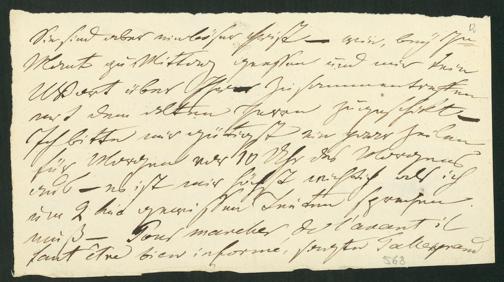 Sie sind aber ein böser Christ – wir, bey
Mark zu Mittag gegessen und mir kein
Wort über Ihr Zusammentreffen
mit dem alten Herrn zugeschickt –
Ich bitte mir gütigst ein paar Zeilen
für Morgen vor 10 Uhr des Morgens
aus – es ist mir höchst wichtig als ich
um 2 bei gewissen Leuten sprechen
muß – Pour marcher de l'avant il
faut être bien informé, sagte Talleyrand
563